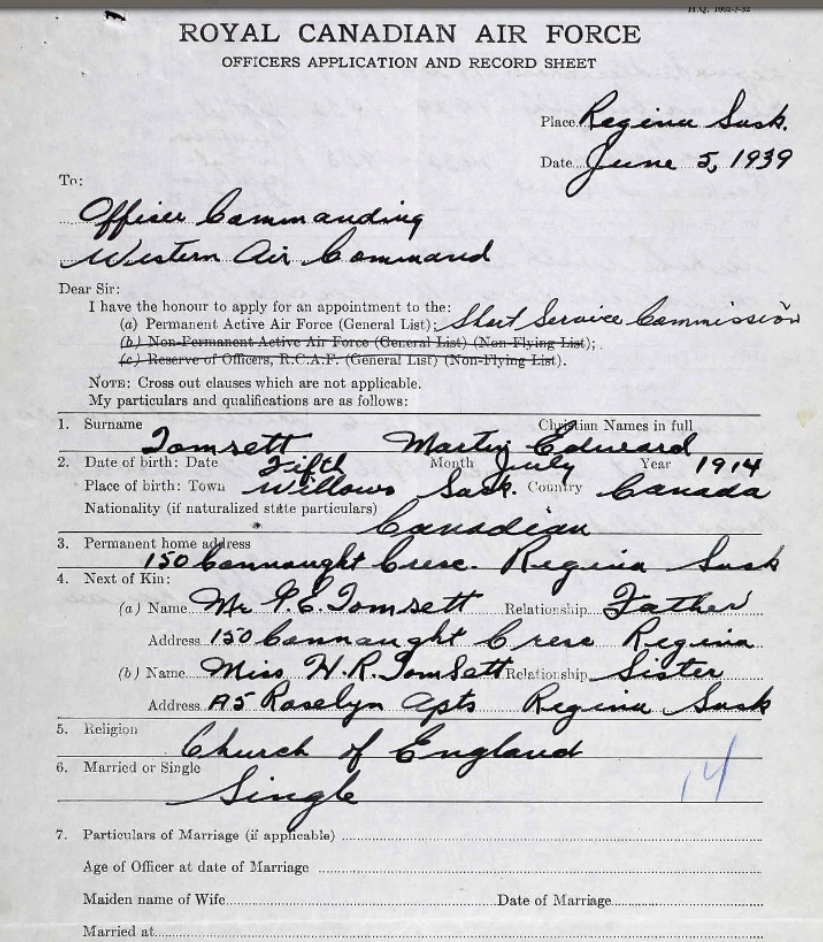 ROYAL CANADIAN AIR FORCE
OFFICERS APPLICATION AND RECORD SHEET
Place Regina Sask.
Date June 5, 1939
To:
Officer Commanding
Western Air Command
Dear Sir:
I have the honour to apply for an appointment to the:
(a) Permanent Active Air Force (General List); Short Service Commission
(b) Non-Permanent Active Air Force (General List) (Non-Flying List);
(c) Reserve of Officers, R.C.A.F. (General List) (Non-Flying List).
NOTE: Cross out clauses which are not applicable.
My particulars and qualifications are as follows:
1. Surname Christian Names in full
Tomsett Martin Edward
2. Date of birth: Date Fifth Month July Year 1914
Place of birth: Town Willows Sask. Country Canada
Nationality (if naturalized state particulars)
Canadian
3. Permanent home address
150 Connaught Cresc. Regina Sask
4. Next of Kin:
(a) Name Mr Tomsett Relationship Father
Address 150 Connaught Cresc Regina
(b) Name Miss H.R. Tomsett Relationship Sister
Address A5 Roselyn Apts Regina Sask
5. Religion
Church of England
6. Married or Single
Single
14
7. Particulars of Marriage (if applicable)
Age of Officer at date of Marriage
Maiden name of Wife Date of Marriage
Married at